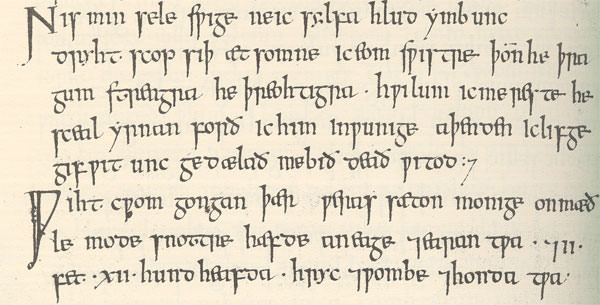 Nis min sele sƿige neic sylfa hlud ymb unc
dryht· scop siþ æt somne ic eom sƿistre þon̄ he þra
gum strengra he þreohtigra · hƿilum ic me reste he
sceal yrnan forð ic him inƿunige aþenden ic lifge
gif ƿit unc gedælað me bið deað ƿitod :⁊
Ƿiht cƿom gongan þær ƿeras sæton monige onmæð
le mode snottre hæfde an eage ⁊earan tƿa · ⁊II·
fet · XII · hund heafda · hryc ⁊ƿombe ⁊honda tƿa